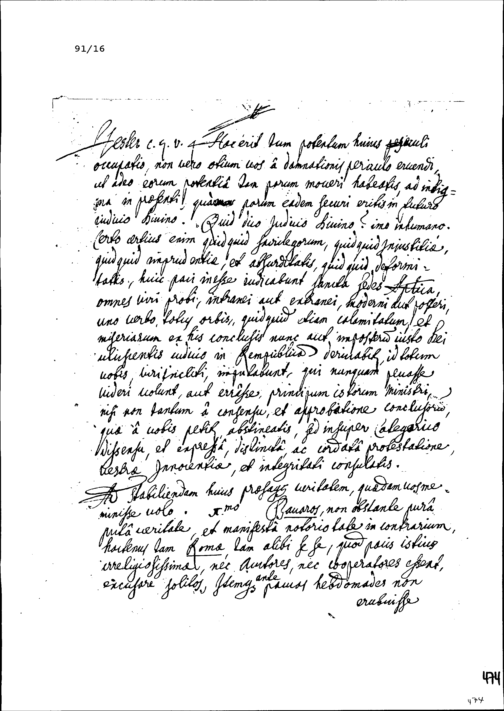 91/16
Hoc erit tum potentum huius seculi
occupatio, non vero otium vos à damnationis periculo eruendi,
ut adeo eorum potentiâ tam parum moveri habeatis, ad
in præsenti, parum eadem securi eritis in futuro
iudicio Divino. Quid dico Judicio Divino? imo inhumano.
Certo certius enim quidquid sacrilegorum, quidquid Injustitiæ,
quidquid imprudentiæ, et absurditatis, quidquid deformi-
tatis, huic paci inesse iudicabunt sancta sedes Aptica,
omnes viri probi, intranei aut extranei, moderni aut posteri,
uno verbo, totus orbis, quidquid etiam calamitatum, et
miseriarum ex his conclusis nunc aut imposterum iusto Dei
ulciscentis iudicio in Rempublicam derivabit, id totum
vobis, imputabunt, qui nunquam
videri volunt, aut errasse, principum istorum Ministri,
nisi non tantum à consensu, et approbatione
quæ à vobis petit, abstineatis, sed insuper Categorico
Dissensu, et expressâ, distinctâ ac cordatâ protestatione,
vestræ Innocentiæ, et integritati consulatis.
Ad stabiliendam huius veritatem, quædam
minisse volo. Bavaros, non obstante purâ
putâ veritate, et manifestâ notorietate in contrarium,
hactenus tam Romæ tam alibi se se, quod pacis istius
irreligiosissimæ, nec Auctores, nec cooperatores essent,
excusare solitos, ante paucas hebdomades non
erubuisse
474
474